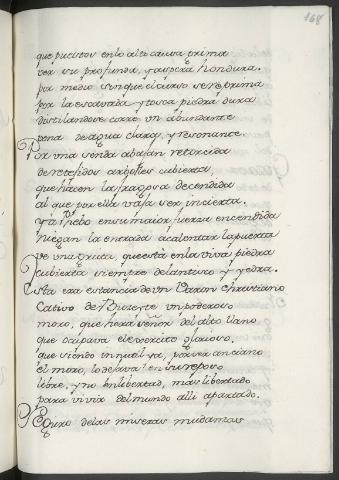 168
que puestos en lo alto causa grima
ver su profunda, y aspera hondura.
por medio sin que el curso se reprima
por la escavada y tosca piedra dura
distilandose corre un abundante
vena de agua clara, y resonante.
Por una senda abajan retorcida
de retejidos arboles cubierta,
que hacen la fragosa decendida
al que por ella vaja ser incierta.
y a Phebo en su maior fuerza encendida
niegan la entrada a calentar la puerta
de una gruta, que esta en la viva piedra
Cubierta siempre de lantisco y yedra.
Esta era estancia de un Varon Christiano
Cativo de un poderoso
moro, que hera señor del alto llano
que ocupava el exercito glorioso,
que siendo inutil ya, por ser anciano
el moro, lo dejava en su reposo
libre, y no en libertad, mas libertado
para vivir del mundo alli apartado.
Seguro de las miseras mudanzas